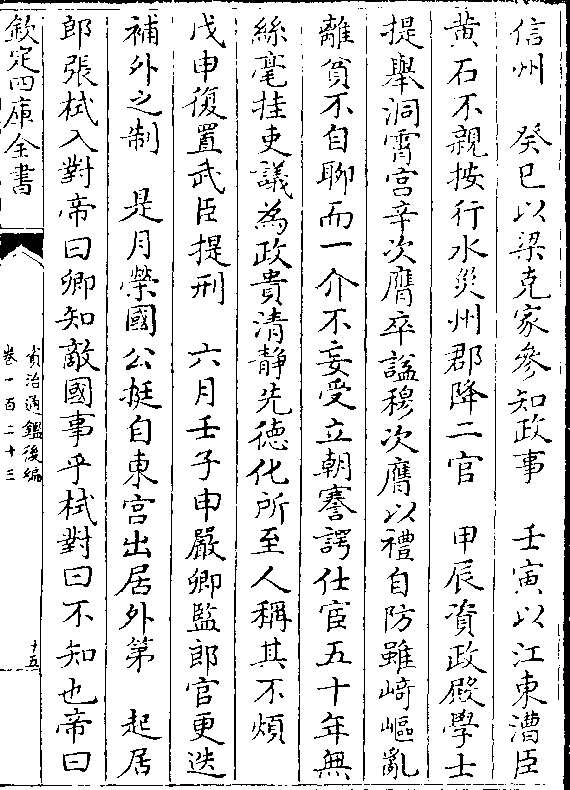 信州　癸巳以梁克家參知政事　壬寅以江東漕臣
黄石不親按行水災州郡降二官　甲辰資政殿學士
提舉洞霄宫辛次膺卒謚穆次膺以禮自防雖﨑嶇亂
離貧不自聊而一介不妄受立朝謇諤仕宦五十年無
絲毫挂吏議為政貴清静先徳化所至人稱其不煩
戊申復置武臣提刑　六月壬子申嚴卿監郎官更迭
補外之制　是月榮國公挺自東宫出居外第　起居
郎張栻入對帝曰卿知敵國事乎栻對曰不知也帝曰
欽定四庫全書
資治通鑑後編
卷一百二十三
十五